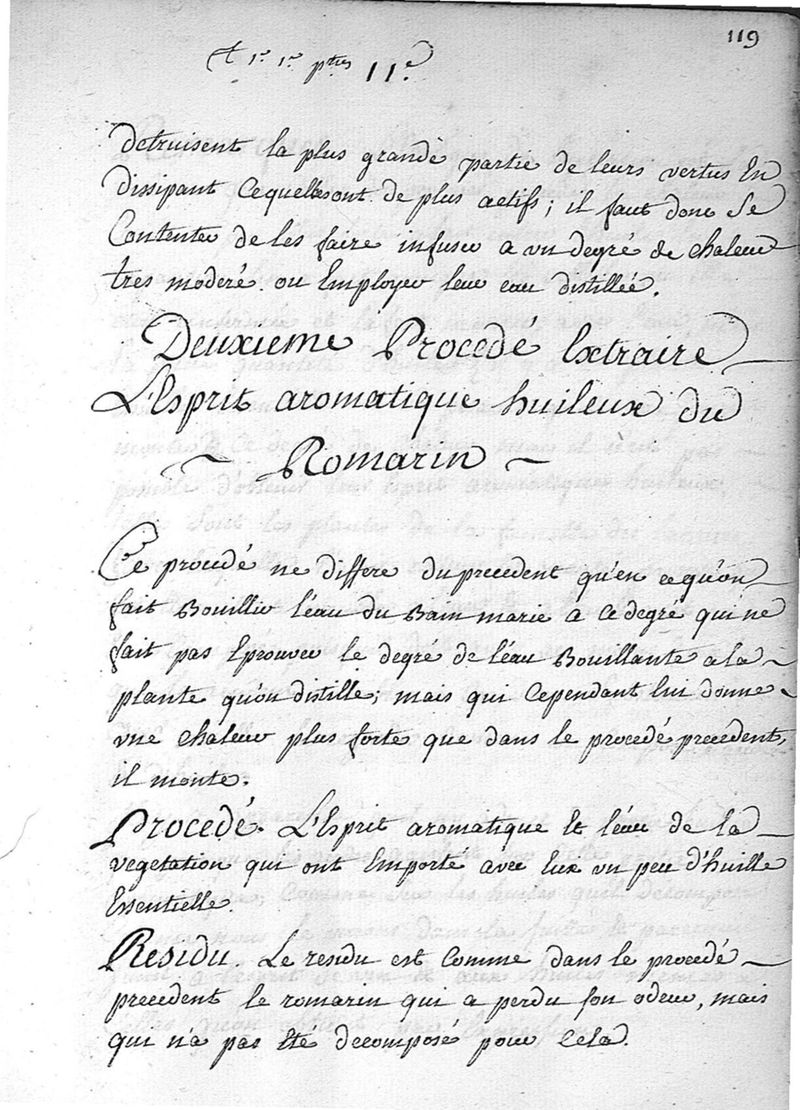 119
1re 1re ptie 11e.
detruisent la plus grande partie de leurs vertus En
dissipant cequellesont de plus actifs; il faut donc se
Contenter de les faire infuser a vn degré de chaleur
tres moderé. ou Employer leur eau distillée.
Deuxieme Procedé Extraire
L'Esprit aromatique huileux du
~ Romarin ~
Ce procedé ne differe du precedent qu'en ce qu'on
fait Bouillir l'eau du Bain marie a ce degré qui ne
fait pas Eprouver le degré de l'eau Bouillante a la
plante qu'on distille; mais qui Cependant lui donne
vne chaleur plus forte que dans le procedé precedent,
il monte.
Procedé. L'Esprit aromatique Et l'eau de la
vegetation qui ont Emporté avec Eux vn peu d'huille
Essentielle.
Residu. Le residu est Comme dans le procedé
precedent le romarin qui a perdu son odeur, mais
qui n'a pas Eté decomposé pour Cela.